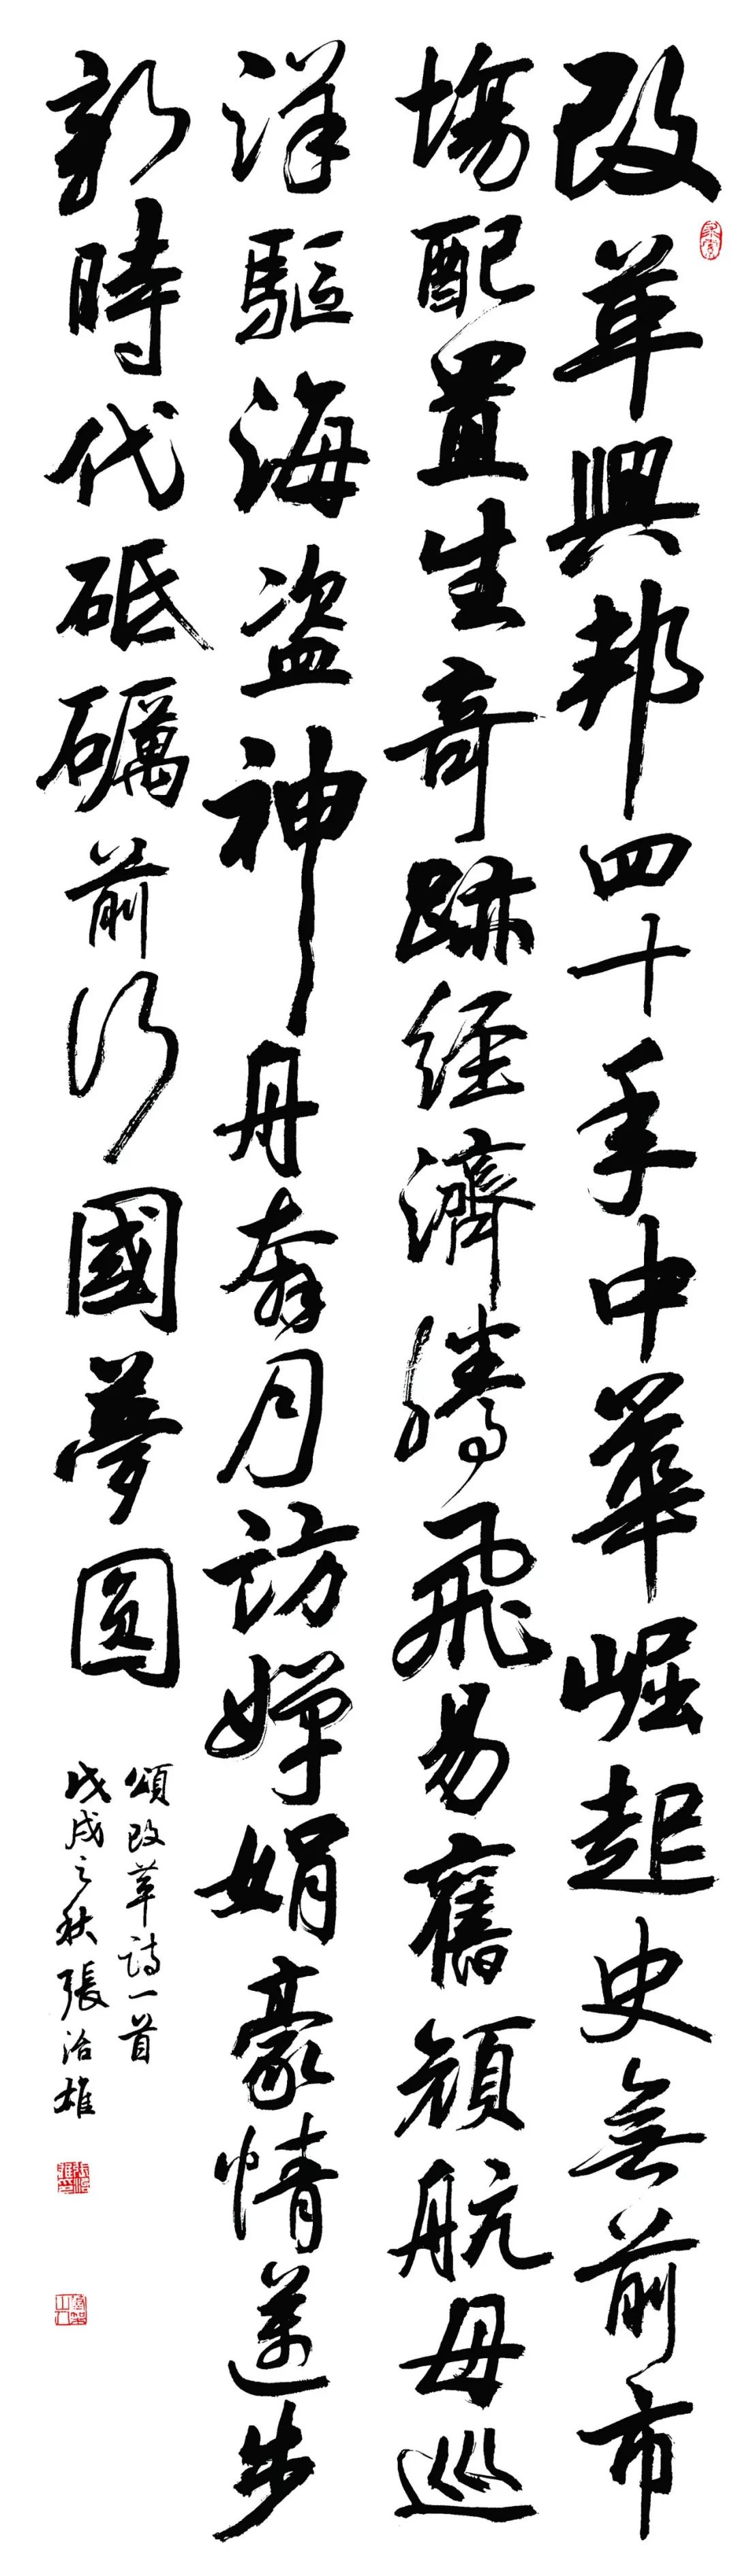 改革興邦四十年中華崛起史無前市
場配置生奇跡經濟騰飛易舊顏航母巡
洋驅海盗神舟奔月訪嬋娟豪情邁步
新時代砥礪前行國夢圓
頌改革詩一首
戊戌之秋張治雄